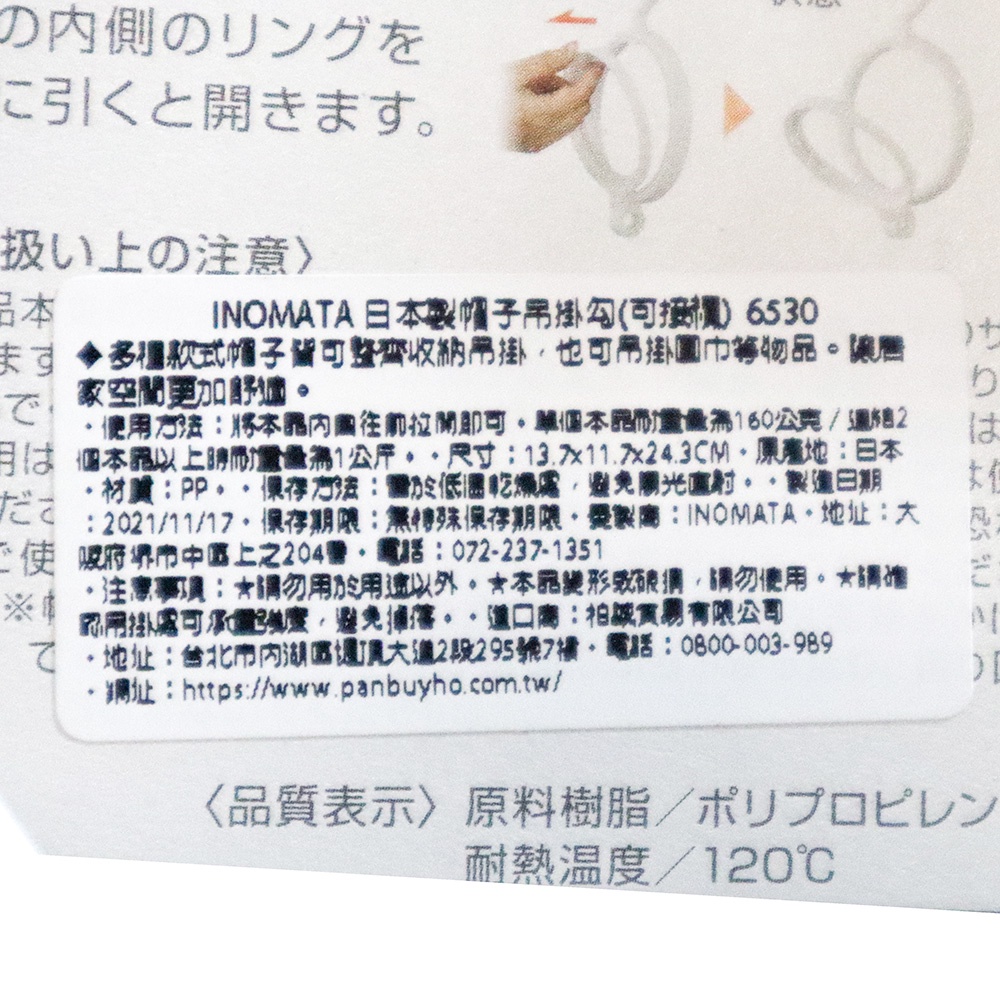 状態
の内側のリングを
に引くと開きます。
扱い上の注意〉
品本
ます
で
用は
ださ
使
※
て
INOMATA 日本製帽子吊掛勾(可接續) 6530
◆多種款式帽子皆可整齊收納吊掛,也可吊掛圍巾等物品。讓居
家空間更加舒適。
・使用方法:將本品內圈往前拉開即可。單個本品耐重量為160公克/連結2
個本品以上時耐重量為1公斤。・尺寸:13.7x11.7x24.3CM・原產地:日本
・材質:PP。・保存方法:置於低溫乾燥處,避免陽光直射。・製造日期
:2021/11/17・保存期限:無特殊保存期限・委製商:INOMATA・地址:大
阪府堺市中區上之204番・電話:072-237-1351
・注意事項:★請勿用於用途以外。★本品變形或破損,請勿使用。★請確
認吊掛處可承重強度,避免掉落。・進口商:柏毅貿易有限公司
・地址:台北市內湖區堤頂大道2段295號7樓・電話:0800-003-989
・網址:https://www.panbuyho.com.tw/
サ
り
は
〈品質表示〉原料樹脂/ポリプロピレン
耐熱温度/120℃